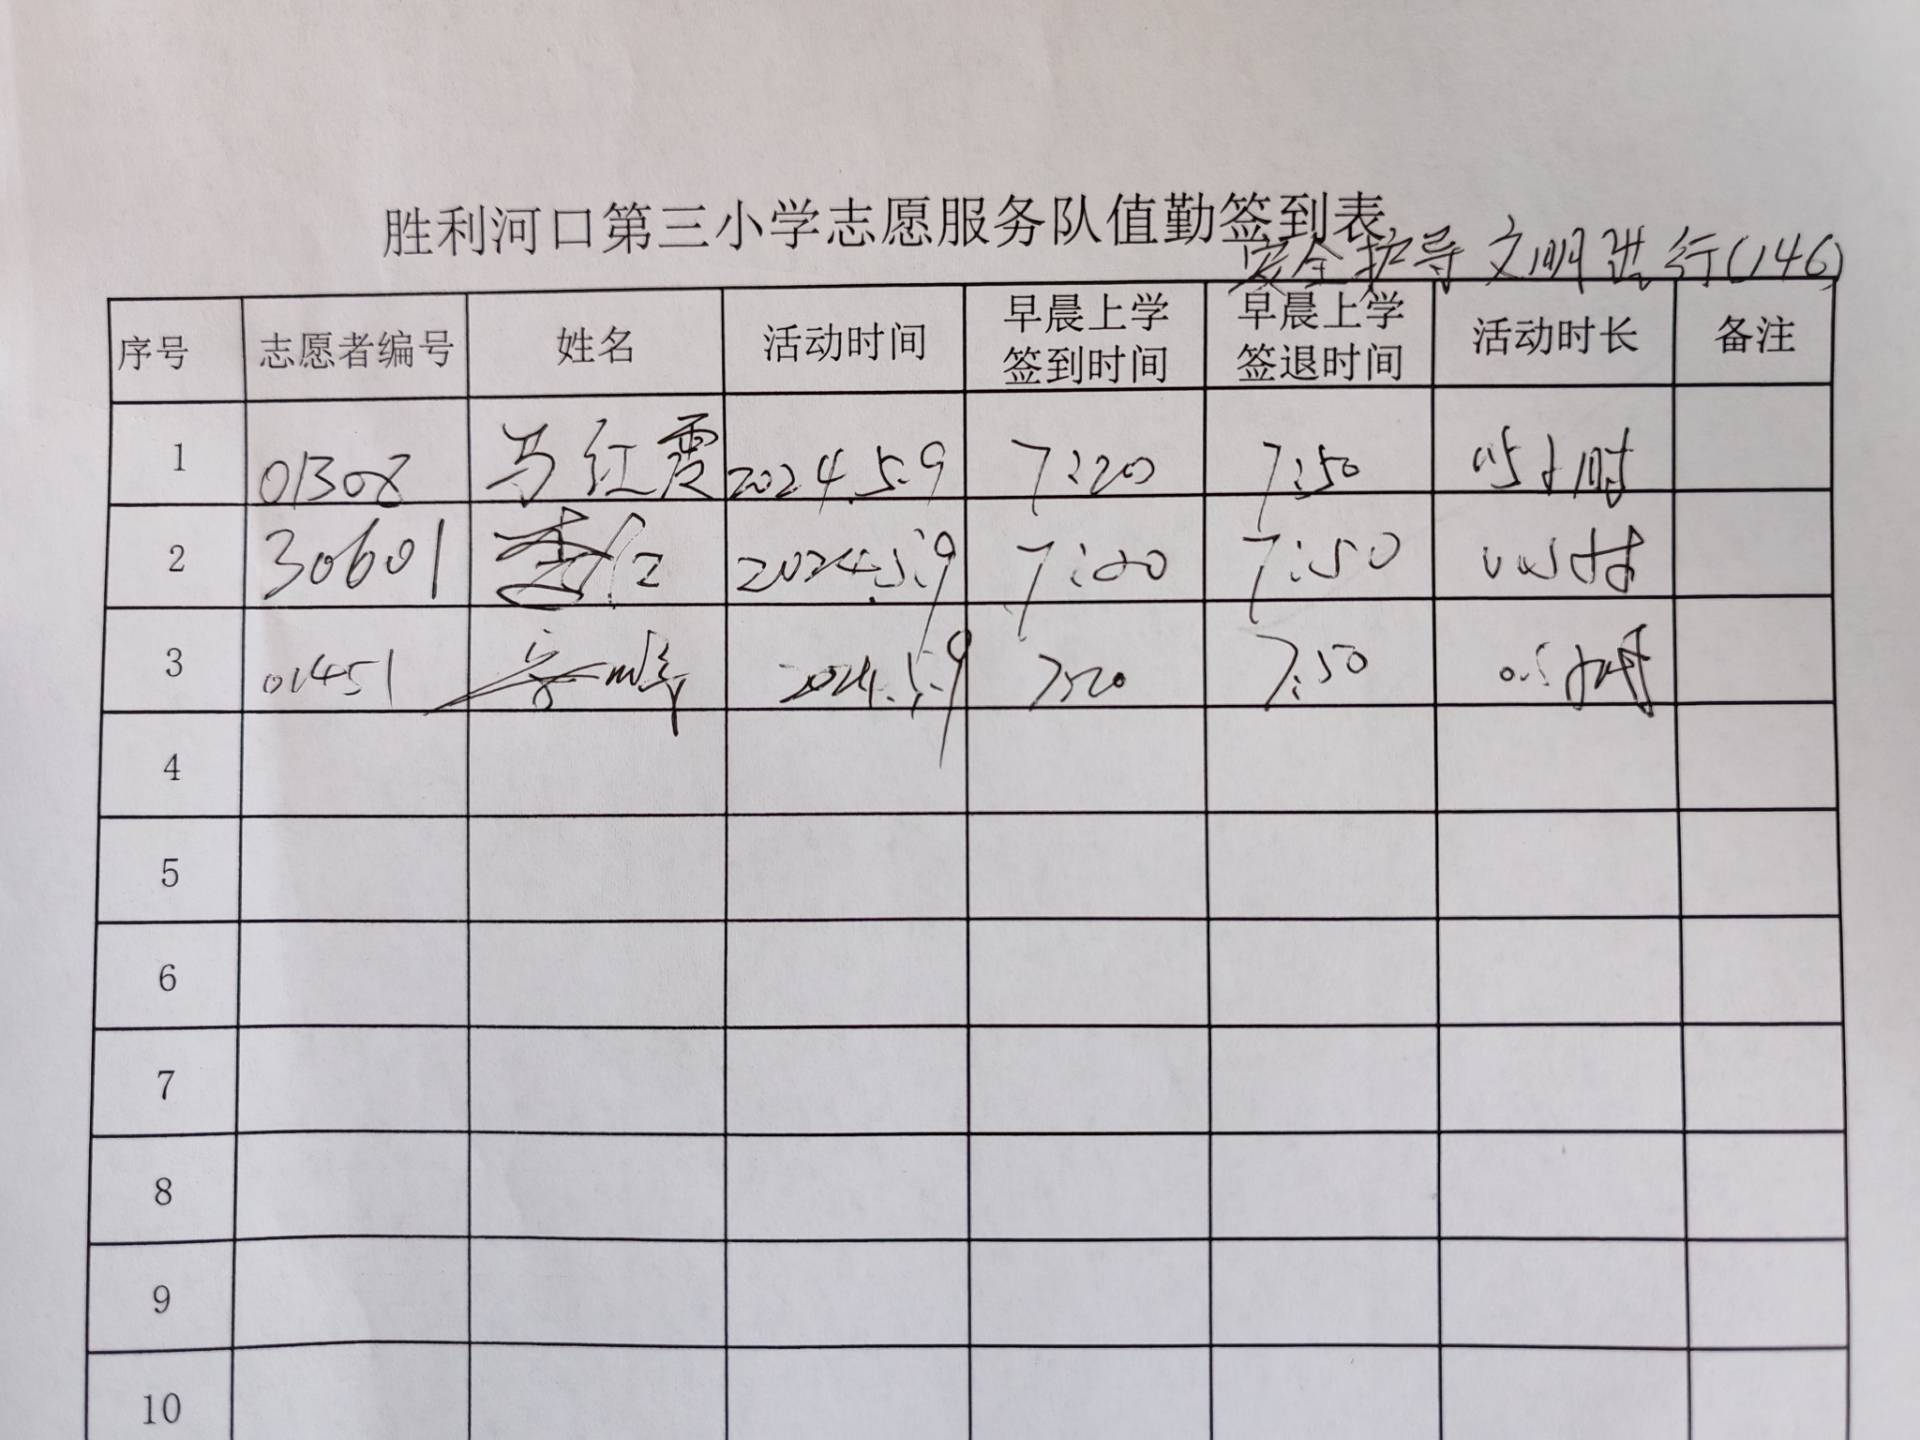 胜利河口第三小学志愿服务队值勤签到表
安全护导 文明进行(146)
序号 志愿者编号 姓名 活动时间 早晨上学签到时间 早晨上学签退时间 活动时长 备注
1 01308 马红霞 2024.5.9 7:20 7:50 0.5小时
2 30601 李仁 2024.5.9 7:20 7:50 0.5小时
3 01451 2024.5.9 7:20 7:50 0.5小时
4
5
6
7
8
9
10